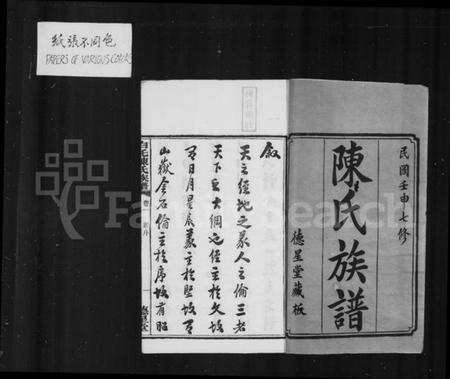 紙張不同色
PAPERS OF VARIOUS COLORS
民國壬申七修
陳氏族譜
德星堂藏板
敘
天之經地之義人之倫三者
天下之大綱也經主於文故
有日月星辰義主於堅故有
山嶽金石倫主於序故有昭
FamilySearch